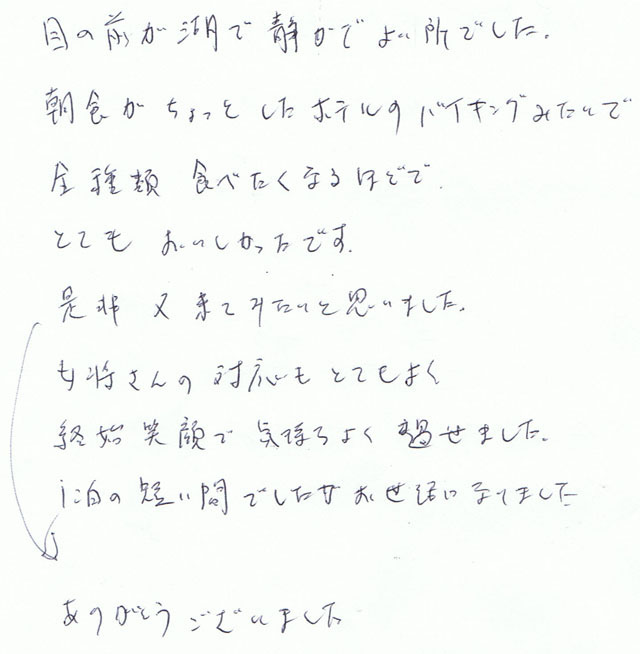 目の前が湖で静かでよい所でした。
朝食がちょっとしたホテルのバイキングみたいで
全種類食べたくなるほどで、
とてもおいしかったです。
是非又来てみたいと思いました。
女将さんの対応もとてもよく
終始笑顔で気持ちよく過せました。
1泊の短い間でしたがお世話になりました
ありがとうございました